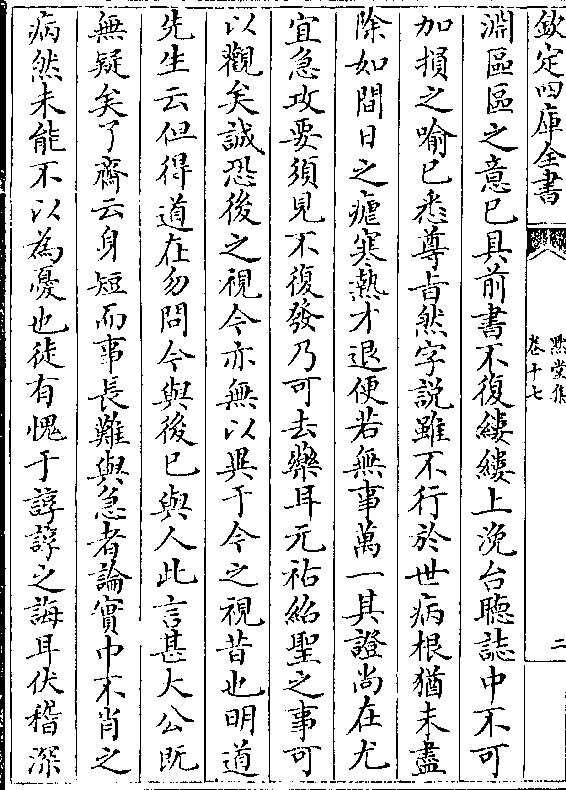 欽定四庫全書
默堂集
卷十七
二
淵區區之意已具前書不復縷縷上浼台聽誌中不可
加損之喻已悉尊旨然字說雖不行於世病根猶未盡
除如間日之瘧寒熱才退便若無事萬一其證尚在尤
宜急攻要須見不復發乃可去藥耳元祐紹聖之事可
以觀矣誠恐後之視今亦無以異于今之視昔也明道
先生云但得道在勿問今與後已與人此言甚大公既
無疑矣了齋云身短而事長難與急者論實中不肖之
病然未能不以為憂也徒有愧于諄諄之誨耳伏稽深